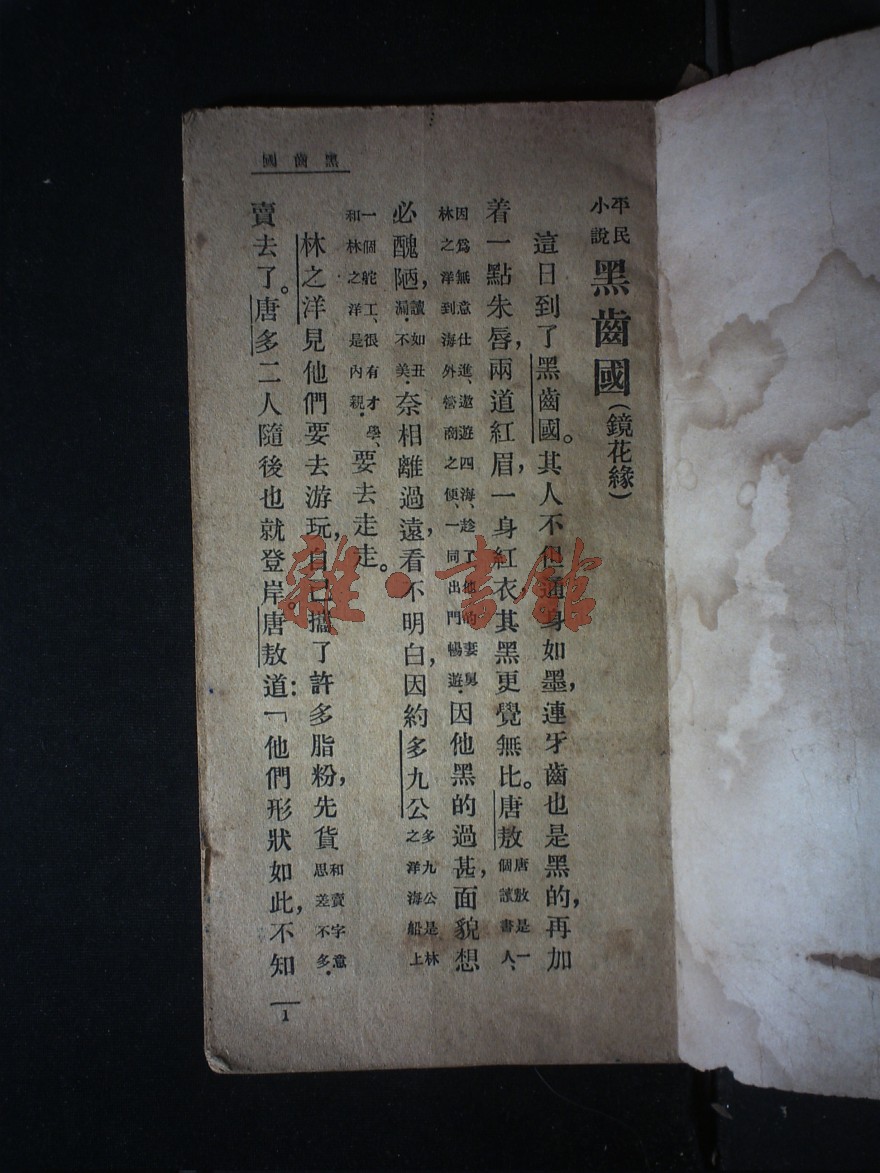 黑齒國
平民小說 黑齒國(鏡花緣)
這日到了黑齒國。其人不但通身如墨,連牙齒也是黑的,再加
着一點朱唇,兩道紅眉,一身紅衣其黑更覺無比。唐敖唐敖是一個讀書人、
因爲無意仕進、遨遊四海、趁了他的妻舅林之洋到海外營商之便、一同出門暢遊.因他黑的過甚,面貌想
必醜陋,讀如丑漏.不美.奈相離過遠,看不明白,因約多九公多九公是林之洋海船上
一個舵工、很有才學、和林之洋是內親.要去走走。
林之洋見他們要去游玩,自己攜了許多脂粉,先貨和賣字意思差不多.
賣去了。唐多二人隨後也就登岸。唐敖道:「他們形狀如此,不知
1
雜·書館